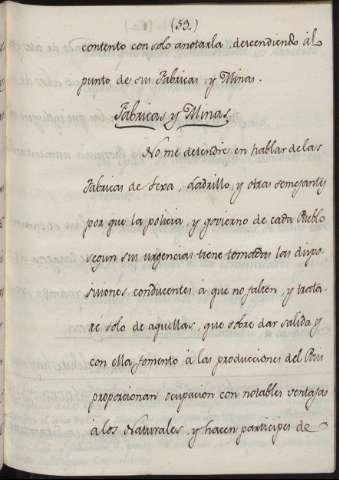 (59.)
contento con solo anotarla, descendiendo ál
punto de sus Fabricas y Minas.
Fabricas y Minas.
No me detendre en hablar de las
Fabricas de Texa, Ladrillo, y otras semejantes
por que la policia, y govierno de cada Pueblo
segun sus urgencias tiene tomadas las dispo
siciones conducentes á que no falten, y trata
ré solo de aquellas, que sobre dar salida y
con ella fomento á las producciones del Peru
proporcionan ocupacion con notables ventajas
a los Naturales, y hacen participes de